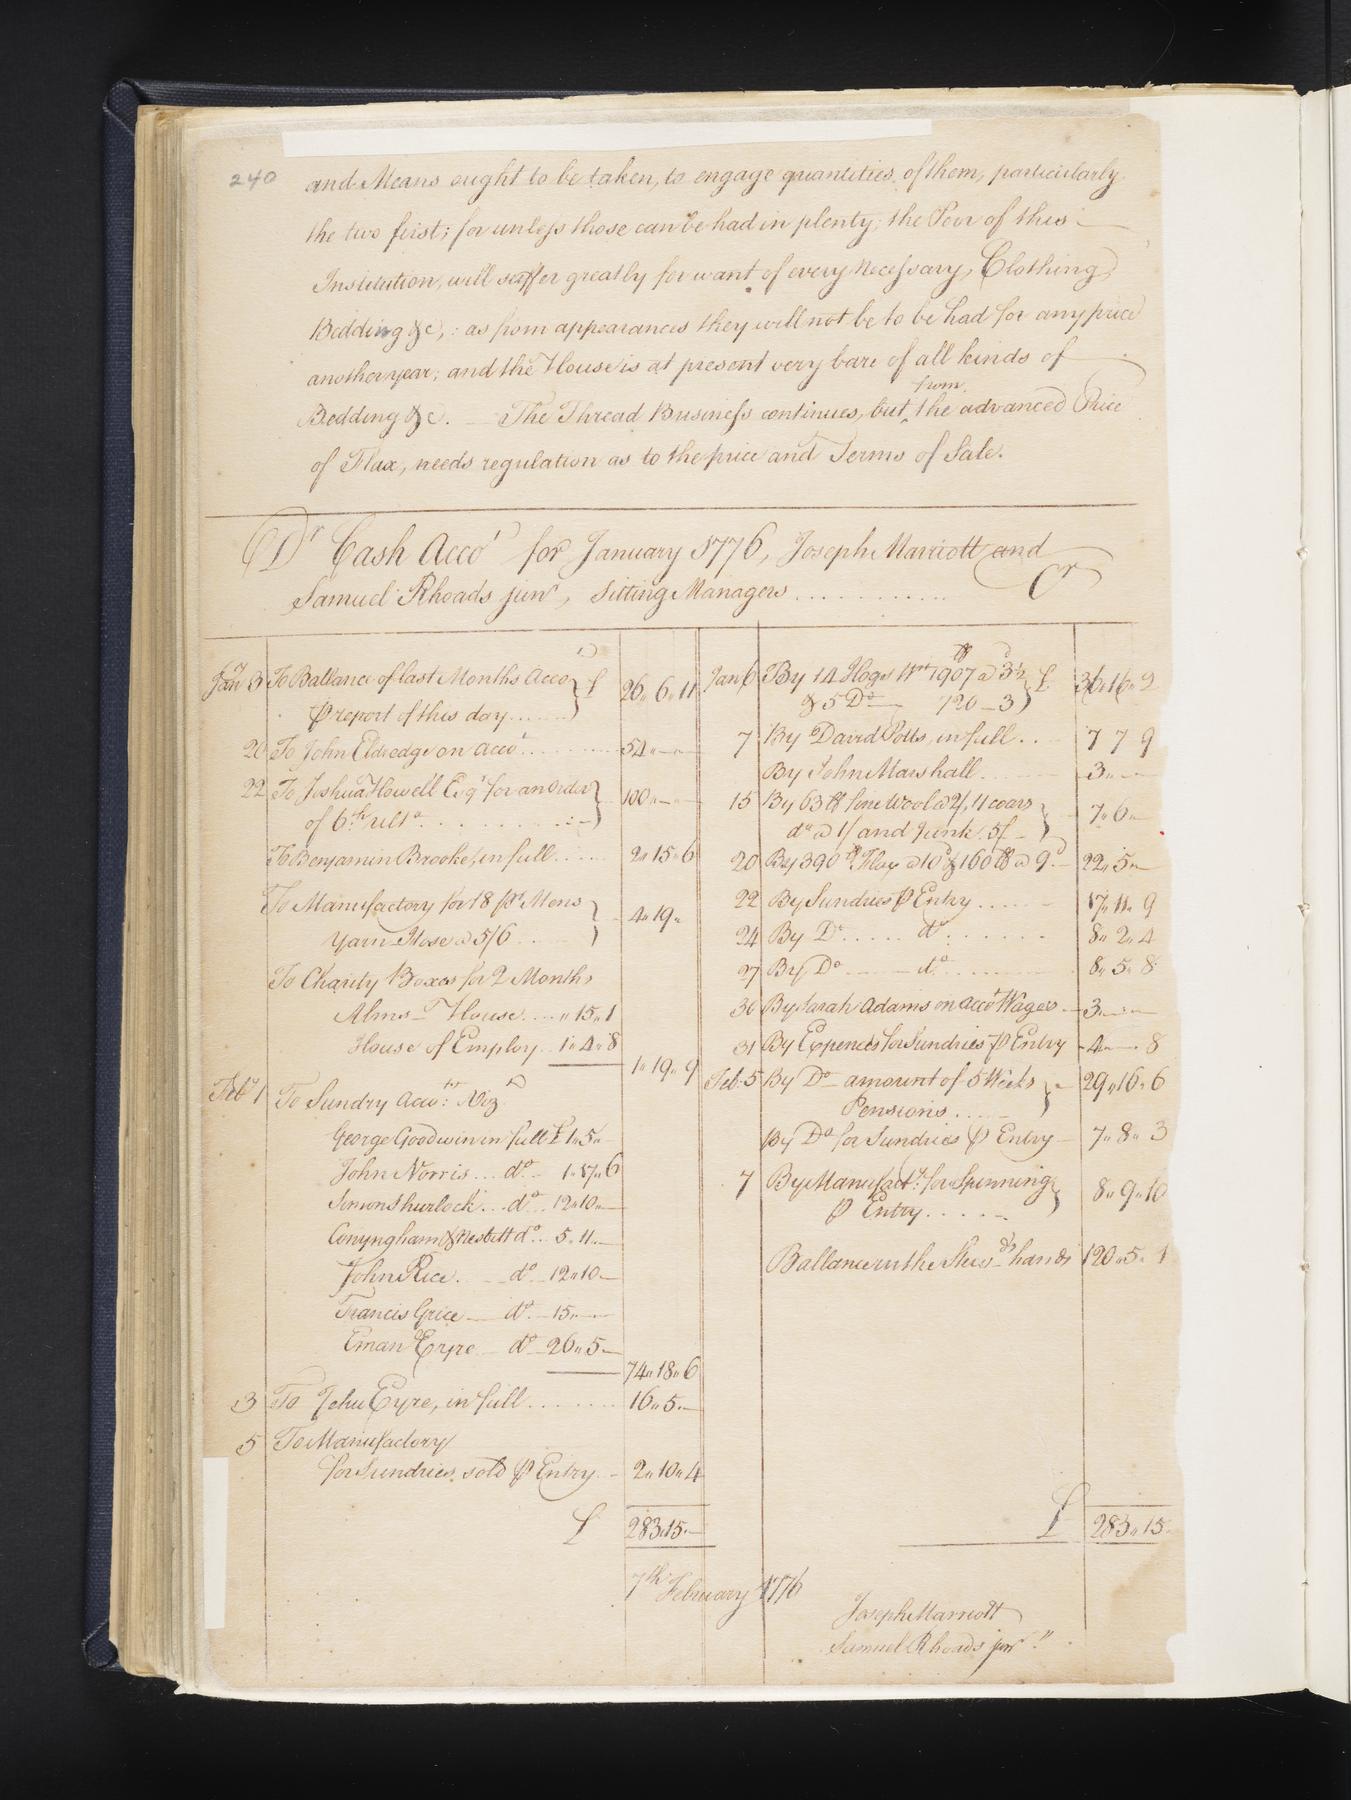 240
and Means ought to be taken, to engage quantities of them, particularly
the two first; for unless those can be had in plenty, the Poor of this
Institution, will suffer greatly for want of every Necessary, Clothing,
Bedding &c,: as from appearances they will not be to be had for any price
another year; and the House is at present very bare of all kinds of
from
Bedding &c. — The Thread Business continues, but ^ the advanced Price
of Flax, needs regulation as to the price and Terms of Sale.
Dr Cash Acco't for January 1776, Joseph Marriott and
Samuel Rhoads junr, Sitting Managers ............ Cr
Jany 3 To Ballance of last Months Acco't } £ 26„6„11
⅌ report of this day ......
20 To John Eldredge on Acco't .......... 54„—„—
22 To Joshua Howell Esqr for an Order } 100„—„—
of 6th ulto. . . . . . . . .
To Benjamin Brooke, in full ..... 2„15„6
To Manufactory for 18 pr Mens } 4„19„
Yarn Hose @ 5/6 ....
To Charity Boxes for 2 Months
Alms-House .... „15„1
House of Employ.. 1„4„8
1„19„9
Feby 1 To Sundry Acco'ts: Viz
George Goodwin in full £1„5„—
John Norris ... do — 1„17„6
Simon Shurlock ... do .. 12„10„—
Conyngham & Nesbitt do ... 5„11„—
John Rice. — do — 12„10—
Francis Grice — do — 15„—
Eman Eyre — do — 26„5—
74„18„6
3 To Jehu Eyre, in full ....... 16„5„—
5 To Manufactory
for Sundries sold ⅌ Entry — 2„10„4
£ 283„15„—
Jan 6 By 14 Hogs wt 1907 lb @ 3½d } £ 36„16„2
& 5 Do — 720 — 3
7 By David Potts, in full ... 7 7 9
By John Marshall ...... 3„—„—
15 By 63 lb fine Wool @ 2/, 11 coars } 7„6„—
do @ 1/ and Junk 5/ —
20 By 390 lb Flax @ 10d & 160 lb @ 9d. — 22„5„—
22 By Sundries ⅌ Entry ...... 17„11„9
24 By Do ..... do ...... 8„2„4
27 By Do —— do ......... 8„5„8
30 By Sarah Adams on acco't Wages — 3„—„—
31 By Expences for Sundries ⅌ Entry — 4„—„8
Feb: 5 By Do — amount of 5 Weeks } 29„16„6
Pensions .....
By Do for Sundries ⅌ Entry — 7„8„3
7 By Manufacty: for Spinning } 8„9„10
⅌ Entry .....
Ballance in the Stewds hands 120„5„1
£ 283„15„
7th February 1776
Joseph Marriott
Samuel Rhoads junr